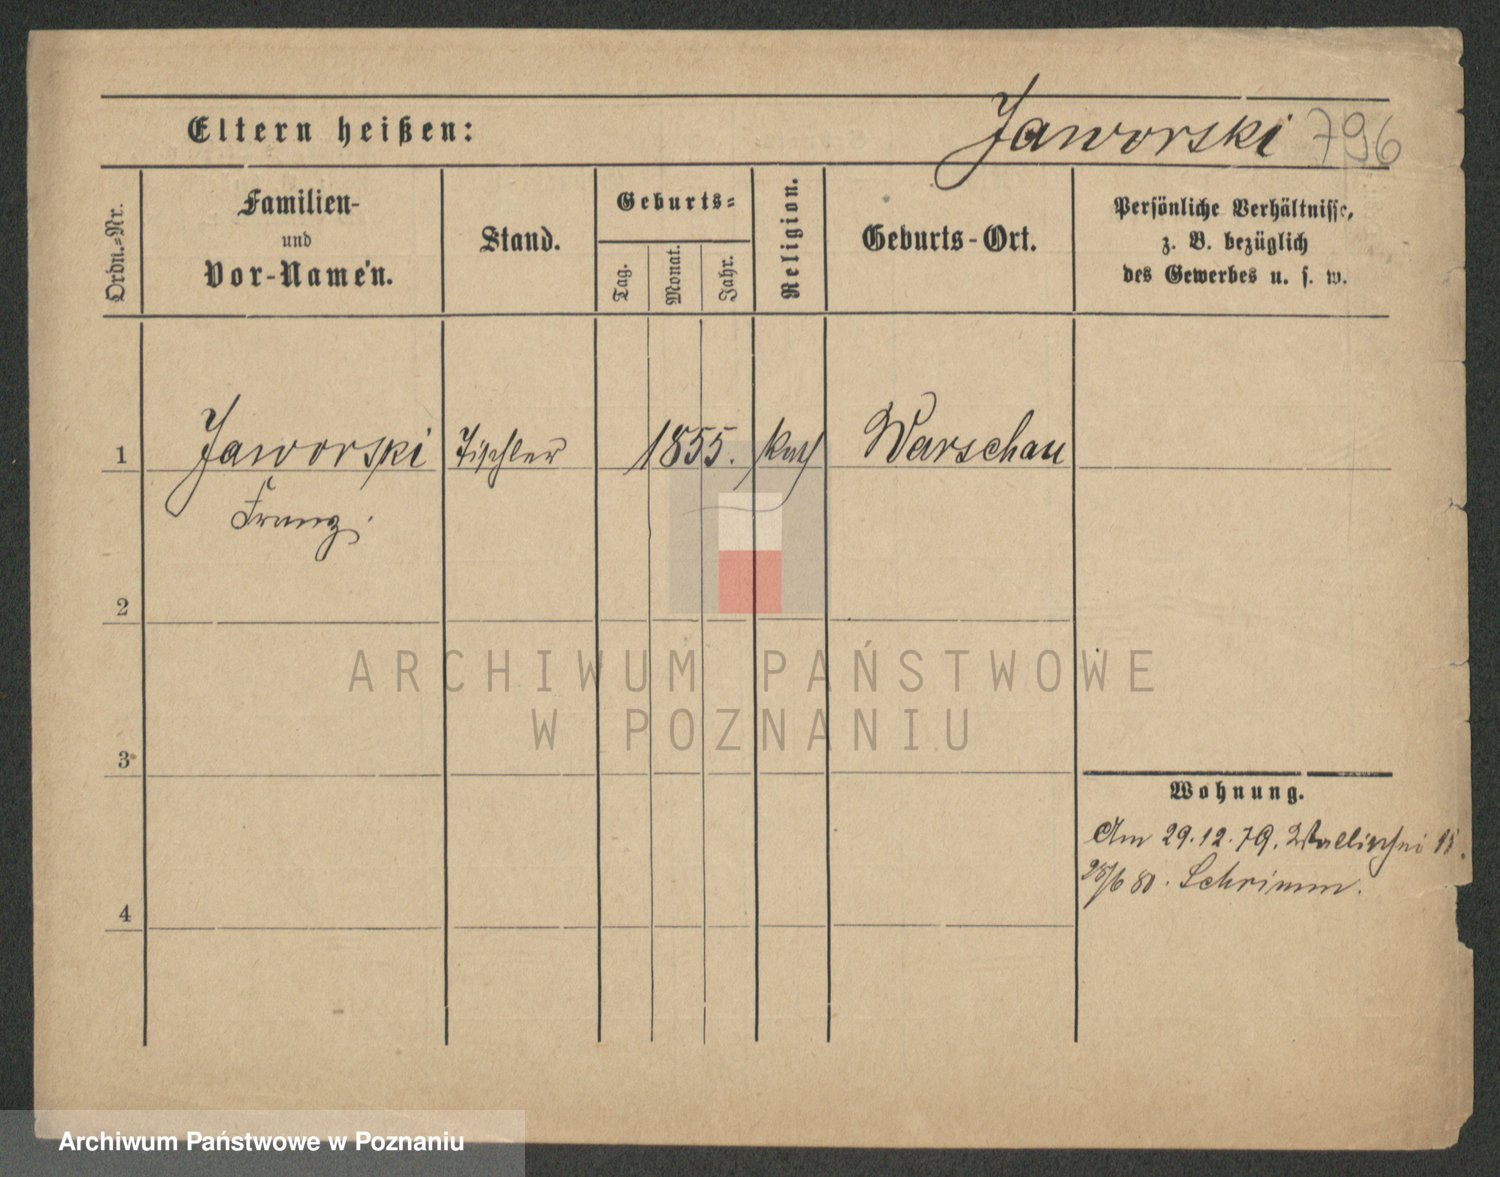 Eltern heißen:
Jaworski 796
Ordn.-Nr.
Familien-
und
Vor-Namen.
Stand.
Geburts-
Tag.
Monat.
Jahr.
Religion.
Geburts-Ort.
Persönliche Verhältnisse,
z. B. bezüglich
des Gewerbes u. s. w.
1 Jaworski Tischler 1855. kath Warschau
Franz.
2
3
4
Wohnung.
Am 29.12.79. Wallischei
28/6 80. Schrimm.
ARCHIWUM PAŃSTWOWE
W POZNANIU
Archiwum Państwowe w Poznaniu